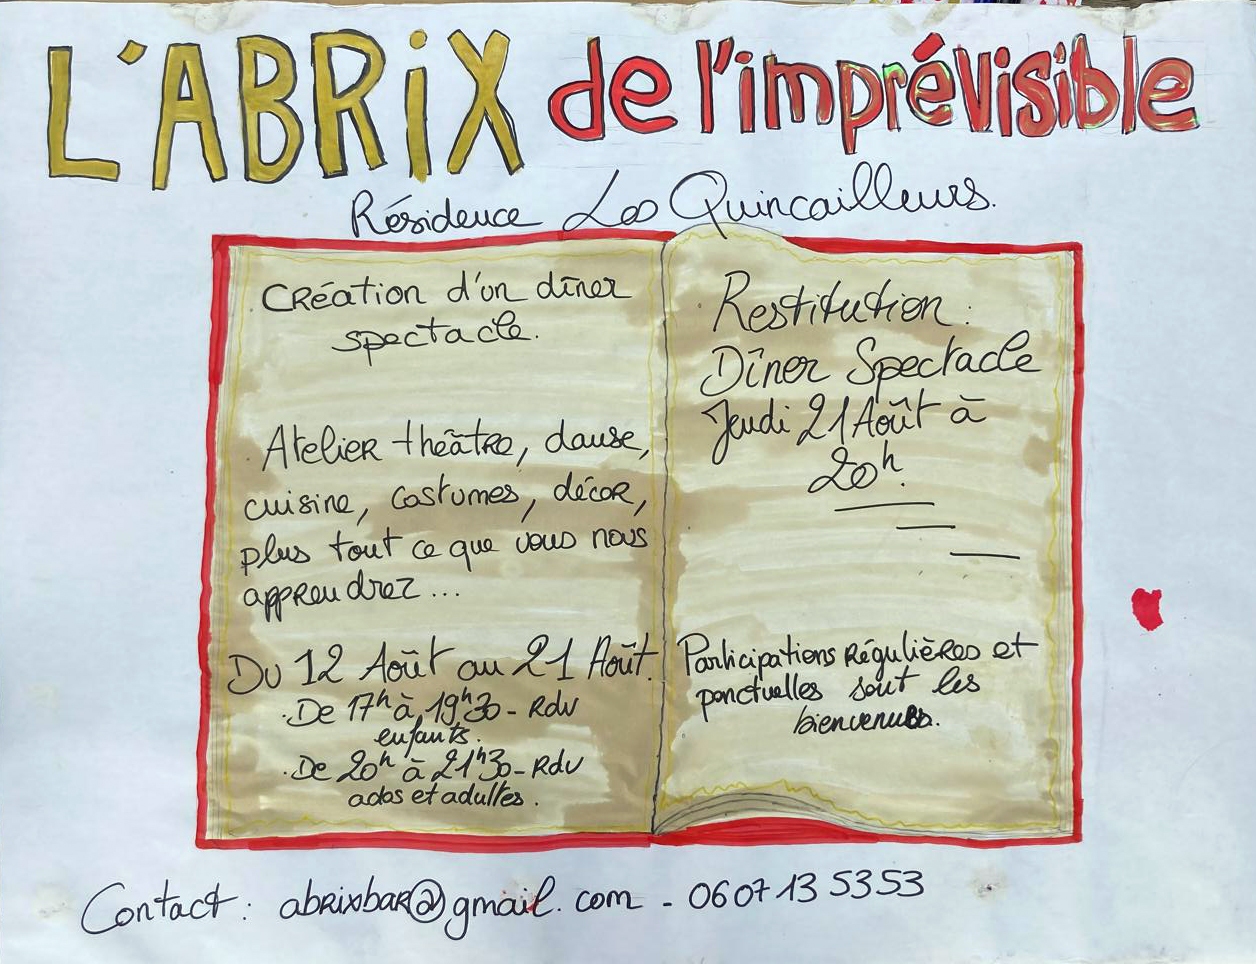 L'ABRiX de l'imprévisible
Résidence Les Quincailleurs.
Création d'un dîner
spectacle.
Atelier théâtre, danse,
cuisine, costumes, décor,
plus tout ce que vous nous
apprendrez...
Du 12 Août au 21 Août.
. De 17h à 19h30 - Rdv
enfants.
. De 20h à 21h30 - Rdv
ados et adultes.
Restitution :
Dîner Spectacle
Jeudi 21 Août à
20h.
Participations Régulières et
ponctuelles sont les
bienvenues.
Contact : abrixbar@gmail.com - 06 07 13 53 53